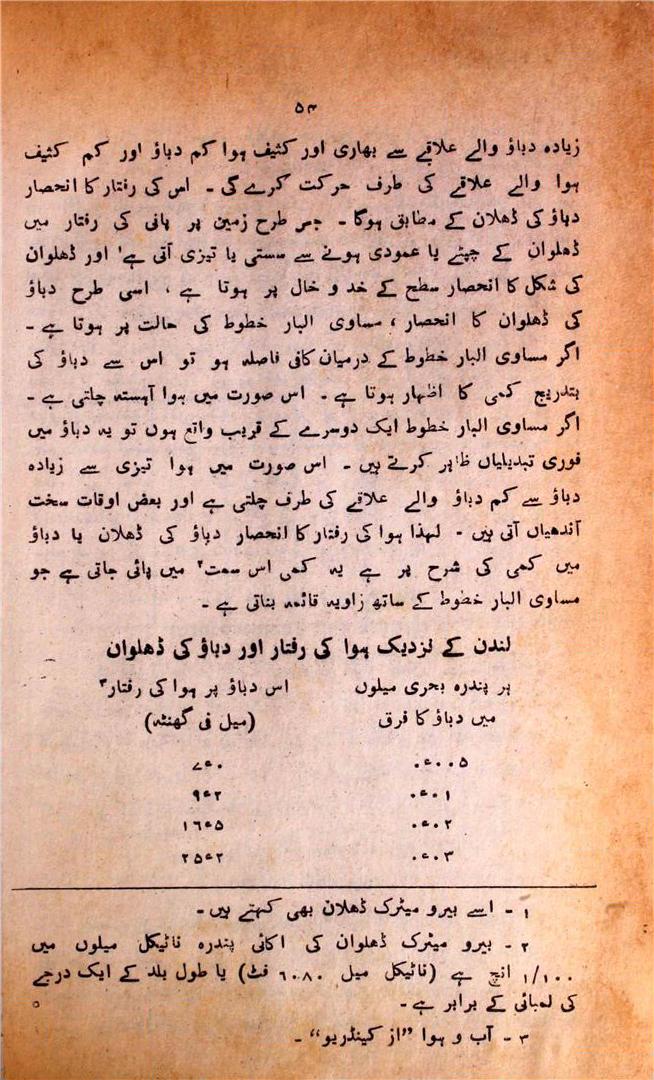 ۵۴
زیادہ دباؤ والے علاقے سے بھاری اور کثیف ہوا کم دباؤ اور کم کثیف
ہوا والے علاقے کی طرف حرکت کرے گی ۔ اس کی رفتار کا انحصار
دباؤ کی ڈھلان کے مطابق ہوگا ۔ جس طرح زمین پر پانی کی رفتار میں
ڈھلوان کے چپٹے یا عمودی ہونے سے سستی یا تیزی آتی ہے' اور ڈھلوان
کی شکل کا انحصار سطح کے خد و خال پر ہوتا ہے ، اسی طرح دباؤ
کی ڈھلوان کا انحصار ، مساوی البار خطوط کی حالت پر ہوتا ہے ۔
اگر مساوی البار خطوط کے درمیان کافی فاصلہ ہو تو اس سے دباؤ کی
بتدریج کمی کا اظہار ہوتا ہے ۔ اس صورت میں ہوا آہستہ چلتی ہے ۔
اگر مساوی البار خطوط ایک دوسرے کے قریب واقع ہوں تو یہ دباؤ میں
فوری تبدیلیاں ظاہر کرتے ہیں ۔ اس صورت میں ہوا تیزی سے زیادہ
دباؤ سے کم دباؤ والے علاقے کی طرف چلتی ہے اور بعض اوقات سخت
آندھیاں آتی ہیں ۔ لہذا ہوا کی رفتار کا انحصار دباؤ کی ڈھلان یا دباؤ
میں کمی کی شرح پر ہے یہ کمی اس سمت۲ میں پائی جاتی ہے جو
مساوی البار خطوط کے ساتھ زاویہ قائمہ بناتی ہے ۔
لندن کے نزدیک ہوا کی رفتار اور دباؤ کی ڈھلوان
ہر پندرہ بحری میلوں اس دباؤ پر ہوا کی رفتار۳
میں دباؤ کا فرق (میل فی گھنٹہ)
۰ء۰۰۵ ۷ء۰
۰ء۰۱ ۹ء۲
۰ء۰۲ ۱۶ء۵
۰ء۰۳ ۲۵ء۲
۱ ۔ اسے بیرو میٹرک ڈھلان بھی کہتے ہیں ۔
۲ ۔ بیرو میٹرک ڈھلوان کی اکائی پندرہ ناٹیکل میلوں میں
۱/۱۰۰ انچ ہے (ناٹیکل میل ۶۰۸۰ فٹ) یا طول بلد کے ایک درجے
کی لمبائی کے برابر ہے ۔
۳ ۔ آب و ہوا ”از کینڈریو“ ۔